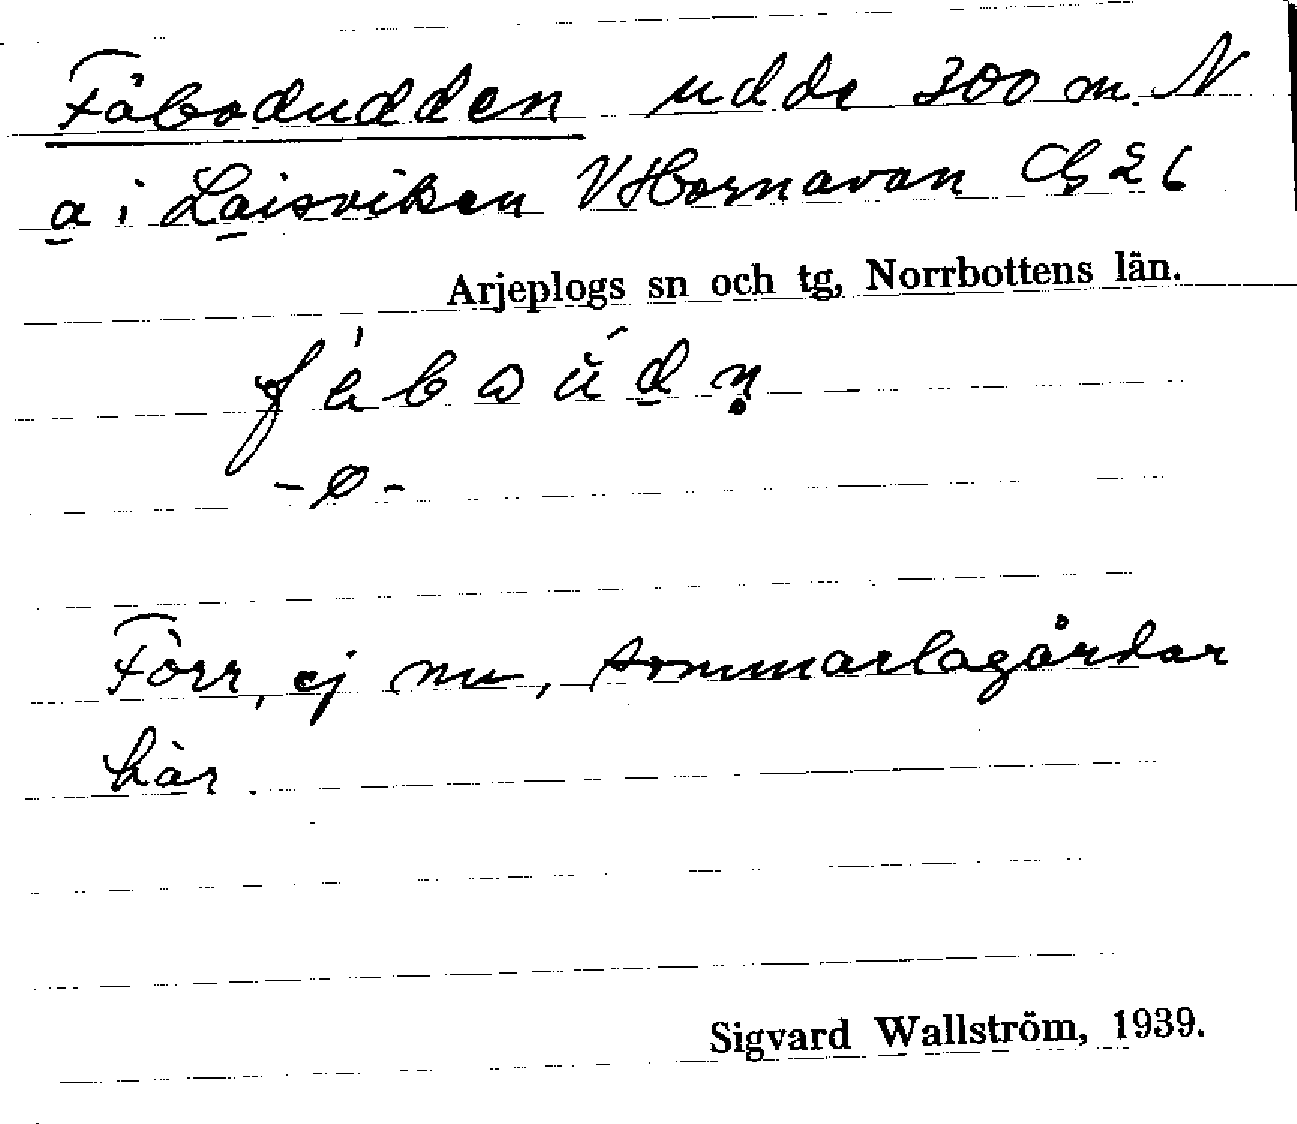 Fäbodudden udde 300 m. N
a i Laisviken V Hornavan G 2 6
Arjeplogs sn och tg, Norrbottens län.
Förr, ej nu, sommarlagårdar
här.
Sigvard Wallström, 1939.